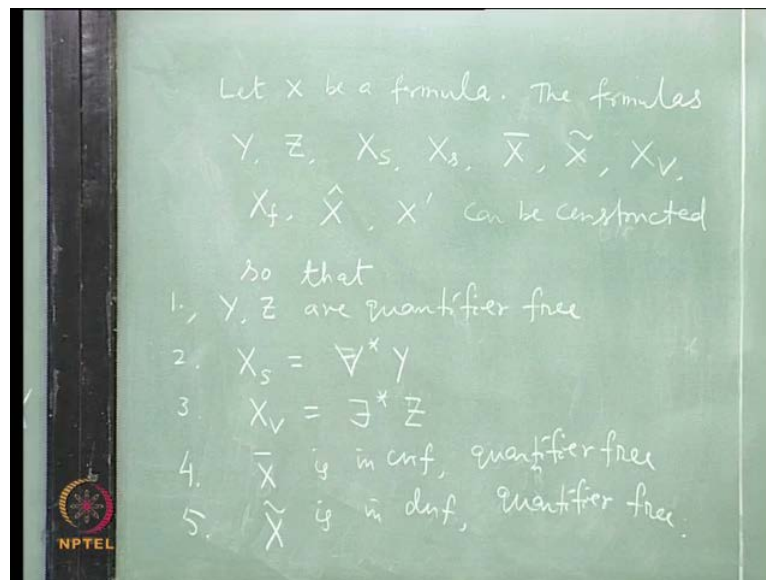 Let X be a formula. The formulas
Y, Z, X_s, X_s, X̄, X̃, X_v,
X_f, X̂, X' can be constructed
so that
1., Y, Z are quantifier free
2. X_s = ∀* Y
3. X_v = ∃* Z
4. X̄ is in cnf, quantifier free
5. X̃ is in dnf, quantifier free.
NPTEL